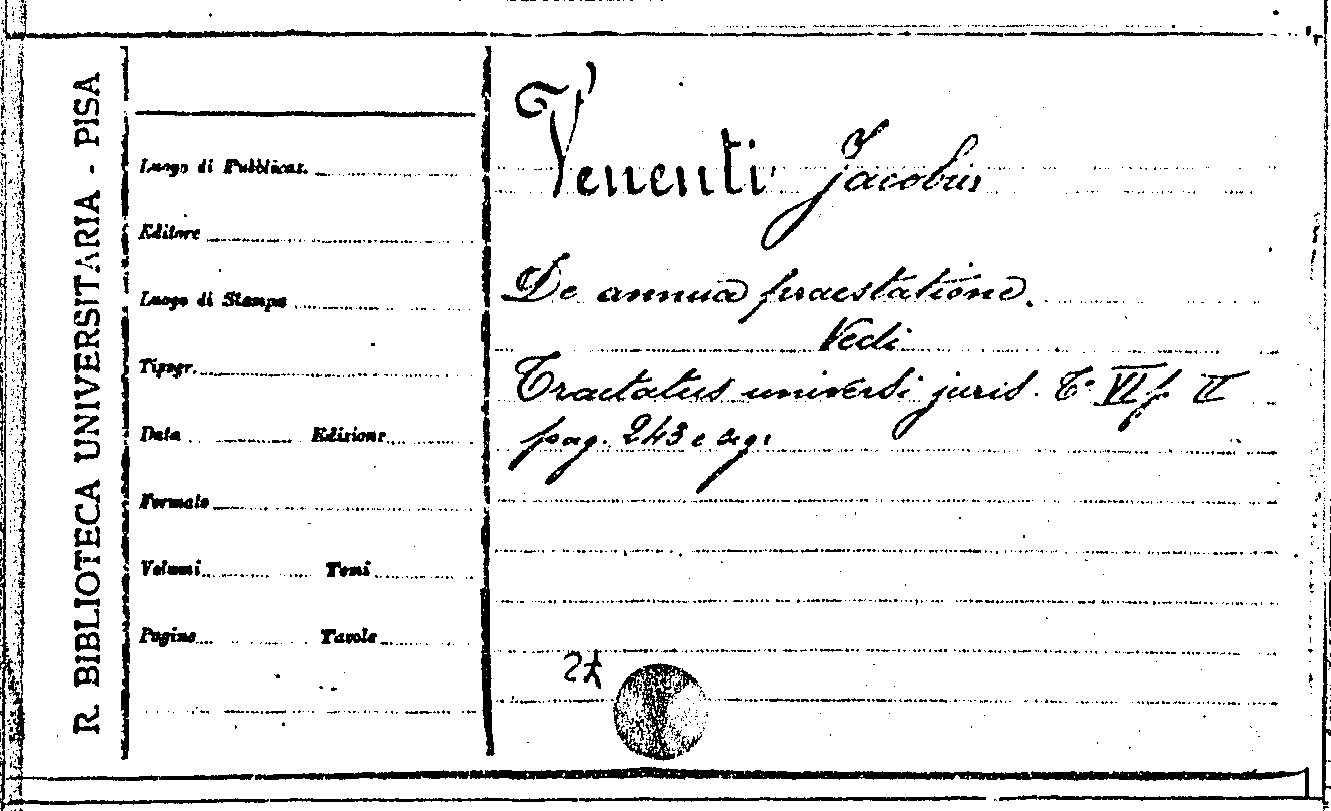 R. BIBLIOTECA UNIVERSITARIA - PISA
Luogo di Pubblicaz.
Editore
Luogo di Stampa
Tipogr.
Data Edizione
Formato
Volumi Tomi
Pagine Tavole
Venenti Jacobus
De annua praestatione.
Vedi
Tractatus universi juris. T. VI p. II
pag. 243 e seg.